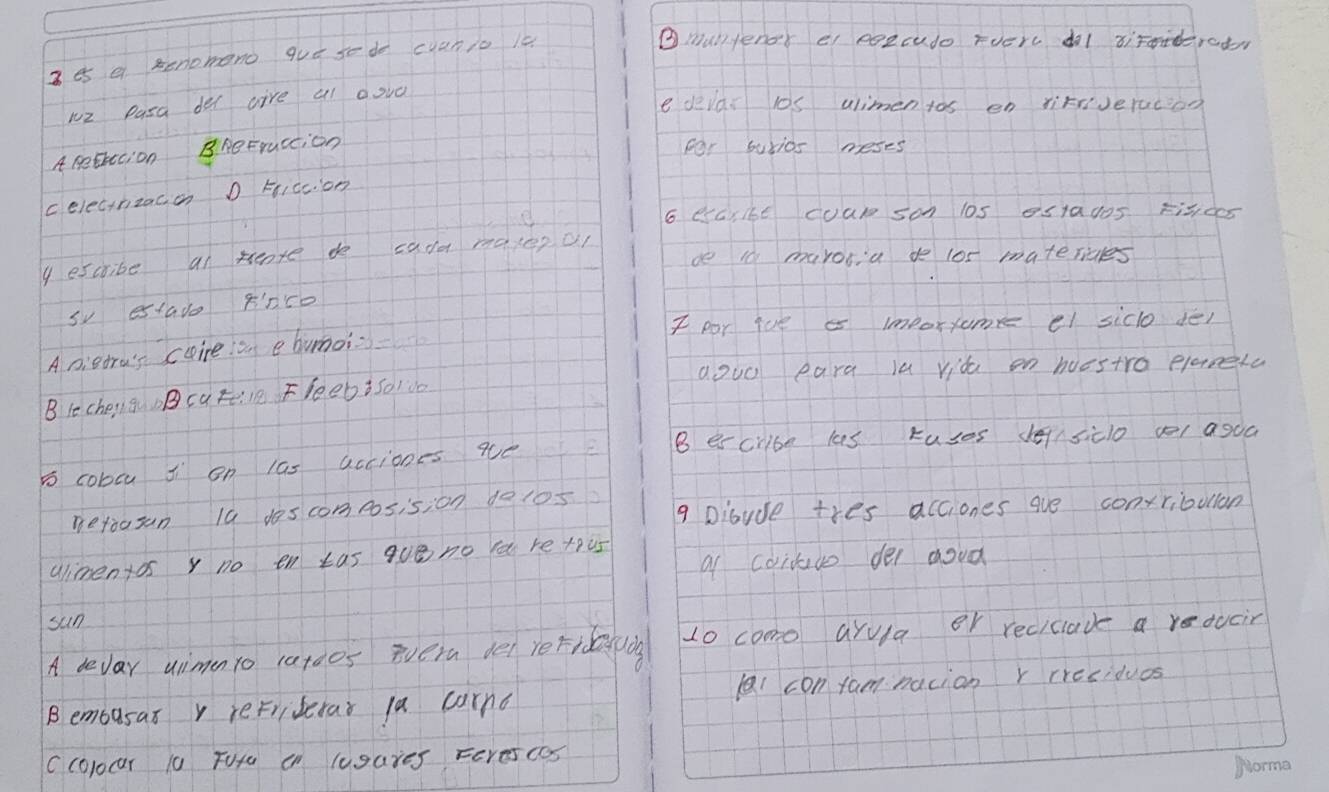 3 es a fenomeno que se de cuanio la
luz pasa del aire al agua
A Refleccion B Refraccion
c electrizacion D Friccion
4 escribe al frente de cada material
su estavo
A piedra's c aire e humo
B leche
5 coloca si en las acciones que
Retrasan la descomposision de los
alimentos y no en las que no la retras
san
A devar alimento latdos fuera del
B embasar y refriderar la carne
C colocar la Futa en lugares
D mantener el pezcudo Fuera del
e devar los alimentos en
por barios meses
6 escribe cuap son los estados Fisicos
de la mayoria de los materiales
7 por que es importante el siclo del
agua para la vida en nuestro planeta
8 escribe las fases del siclo del agua
9 Dibude tres acciones que contribullan
al coidado del agua
10 como aruda er reciclave a reducir
la contaminacion y rresiduos
Norma